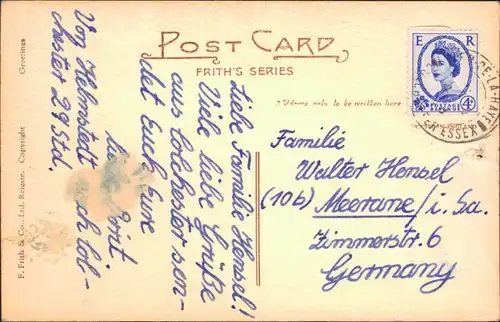 POST CARD
FRITH'S SERIES
Address only to be written here
Greetings
F. Frith & Co., Ltd. Reigate. Copyright
E R
POSTAGE
REVENUE
4D
ESSEX
Liebe Familie Hensel!
Viele liebe Grüße
aus Colchester sen-
det Euch Eure
Von Helmstedt nach Col-
chester 29 Std.
Familie
Walter Hensel
(10b) Meerane/i. Sa.
Zimmerstr. 6
Germany